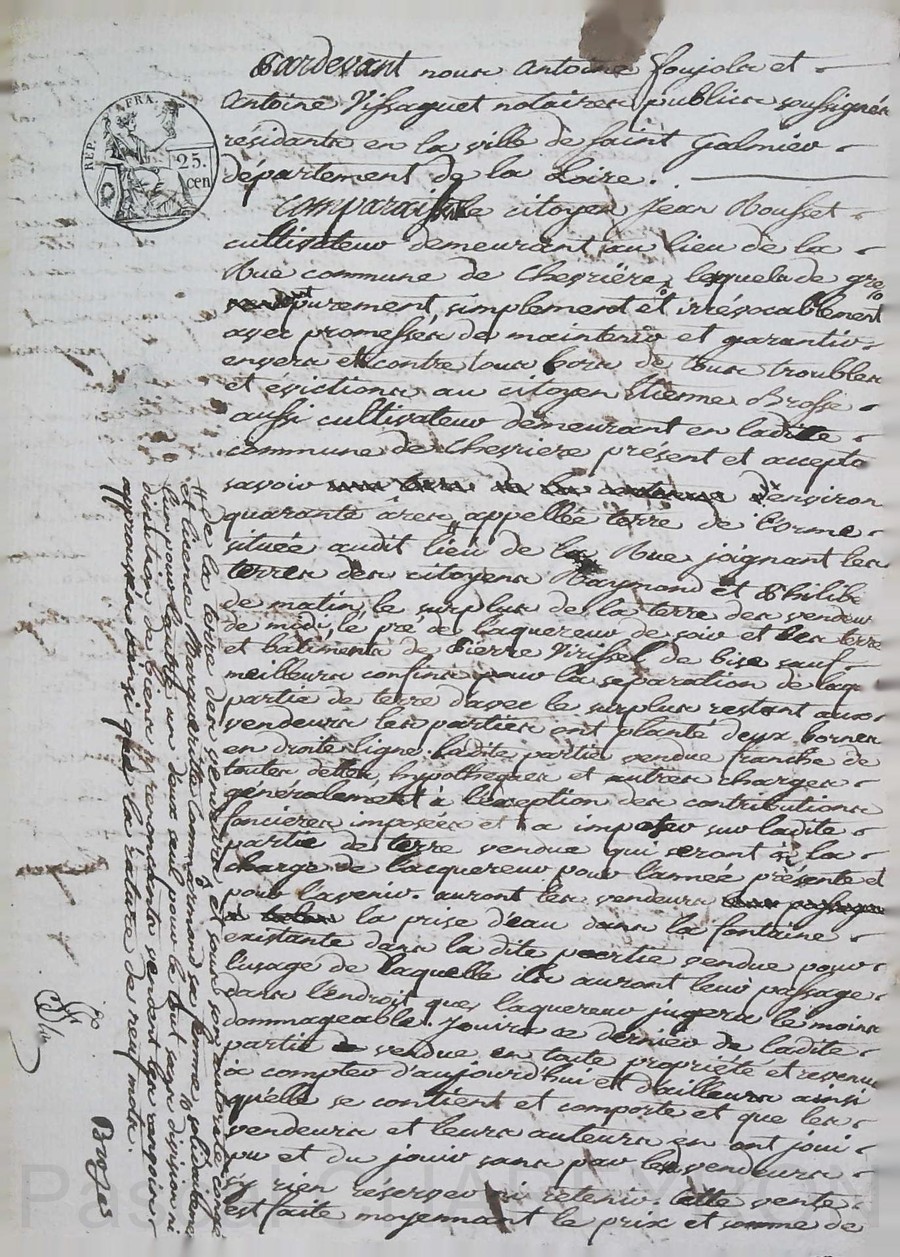 REP. FRA.
25.
cen
Pardevant nous Antoine Joujols et
Antoine Vissaguet notaires publics soussignés
résidants en la ville de Saint Galmier
département de la Loire.
Comparaissent le citoyen Jean Rousset
cultivateur demeurant au lieu de la
Rue commune de Chevrières, lesquels de gré
purement, simplement et irrévocablement
avec promesses de maintenir et garantir
envers et contre tous hors de tous troubles
et évictions au citoyen Etienne Brosse
aussi cultivateur demeurant en ladite
commune de Chevrieres présent et accepta
savoir d'environ
quarante ares, appellée terre de l'orme
située audit lieu de la Rue joignant les
terres des citoyens Raymond et Philibe
de matin, le surplus de la terre des vendeurs
de midi, le pré de l'aquereur de soir et les terre
et batiments de Pierre Virissel de bise sauf
meilleurs confins pour la separation de laq
partie de terre d'avec le surplus restant aux
vendeurs les parties ont planté deux bornes
en droite ligne. ladite partie vendue franche de
toutes dettes, hypothèques et autres charges
généralement à l'exception des contributions
foncieres imposées et a imposer sur ladite
partie de terre vendue qui seront à la
charge de l'acquereur pour l'année présente et
pour lavenir. auront les vendeurs
la prise d'eau dans la fontaine
existante dans la dite partie vendue pour
l'usage de laquelle ils auront leur passage
dans l'endroit que laquereur jugera le moins
dommageable. Jouira ce dernier de ladite
partie vendue en toute propriété et revenu
à compter d'aujourd'hui et d'ailleurs ainsi
qu'elle se contient et comporte et que les
vendeurs et leurs auteurs en ont joui
pu et du jouir sans par les vendeurs
s'y rien réserver ni retenir. Cette vente
est faite moyennant le prix et somme de
de la terre des vendeurs et sous son autorité congé
et licence Marguerite commarmond sa femme solidairement
l'un pour l'autre un deux seul pour le tout sans division ni
discution de biens y renonçants vendent
approuvées ainsi que la rature de neuf mots.
Broges
Pascal CHAREYRON